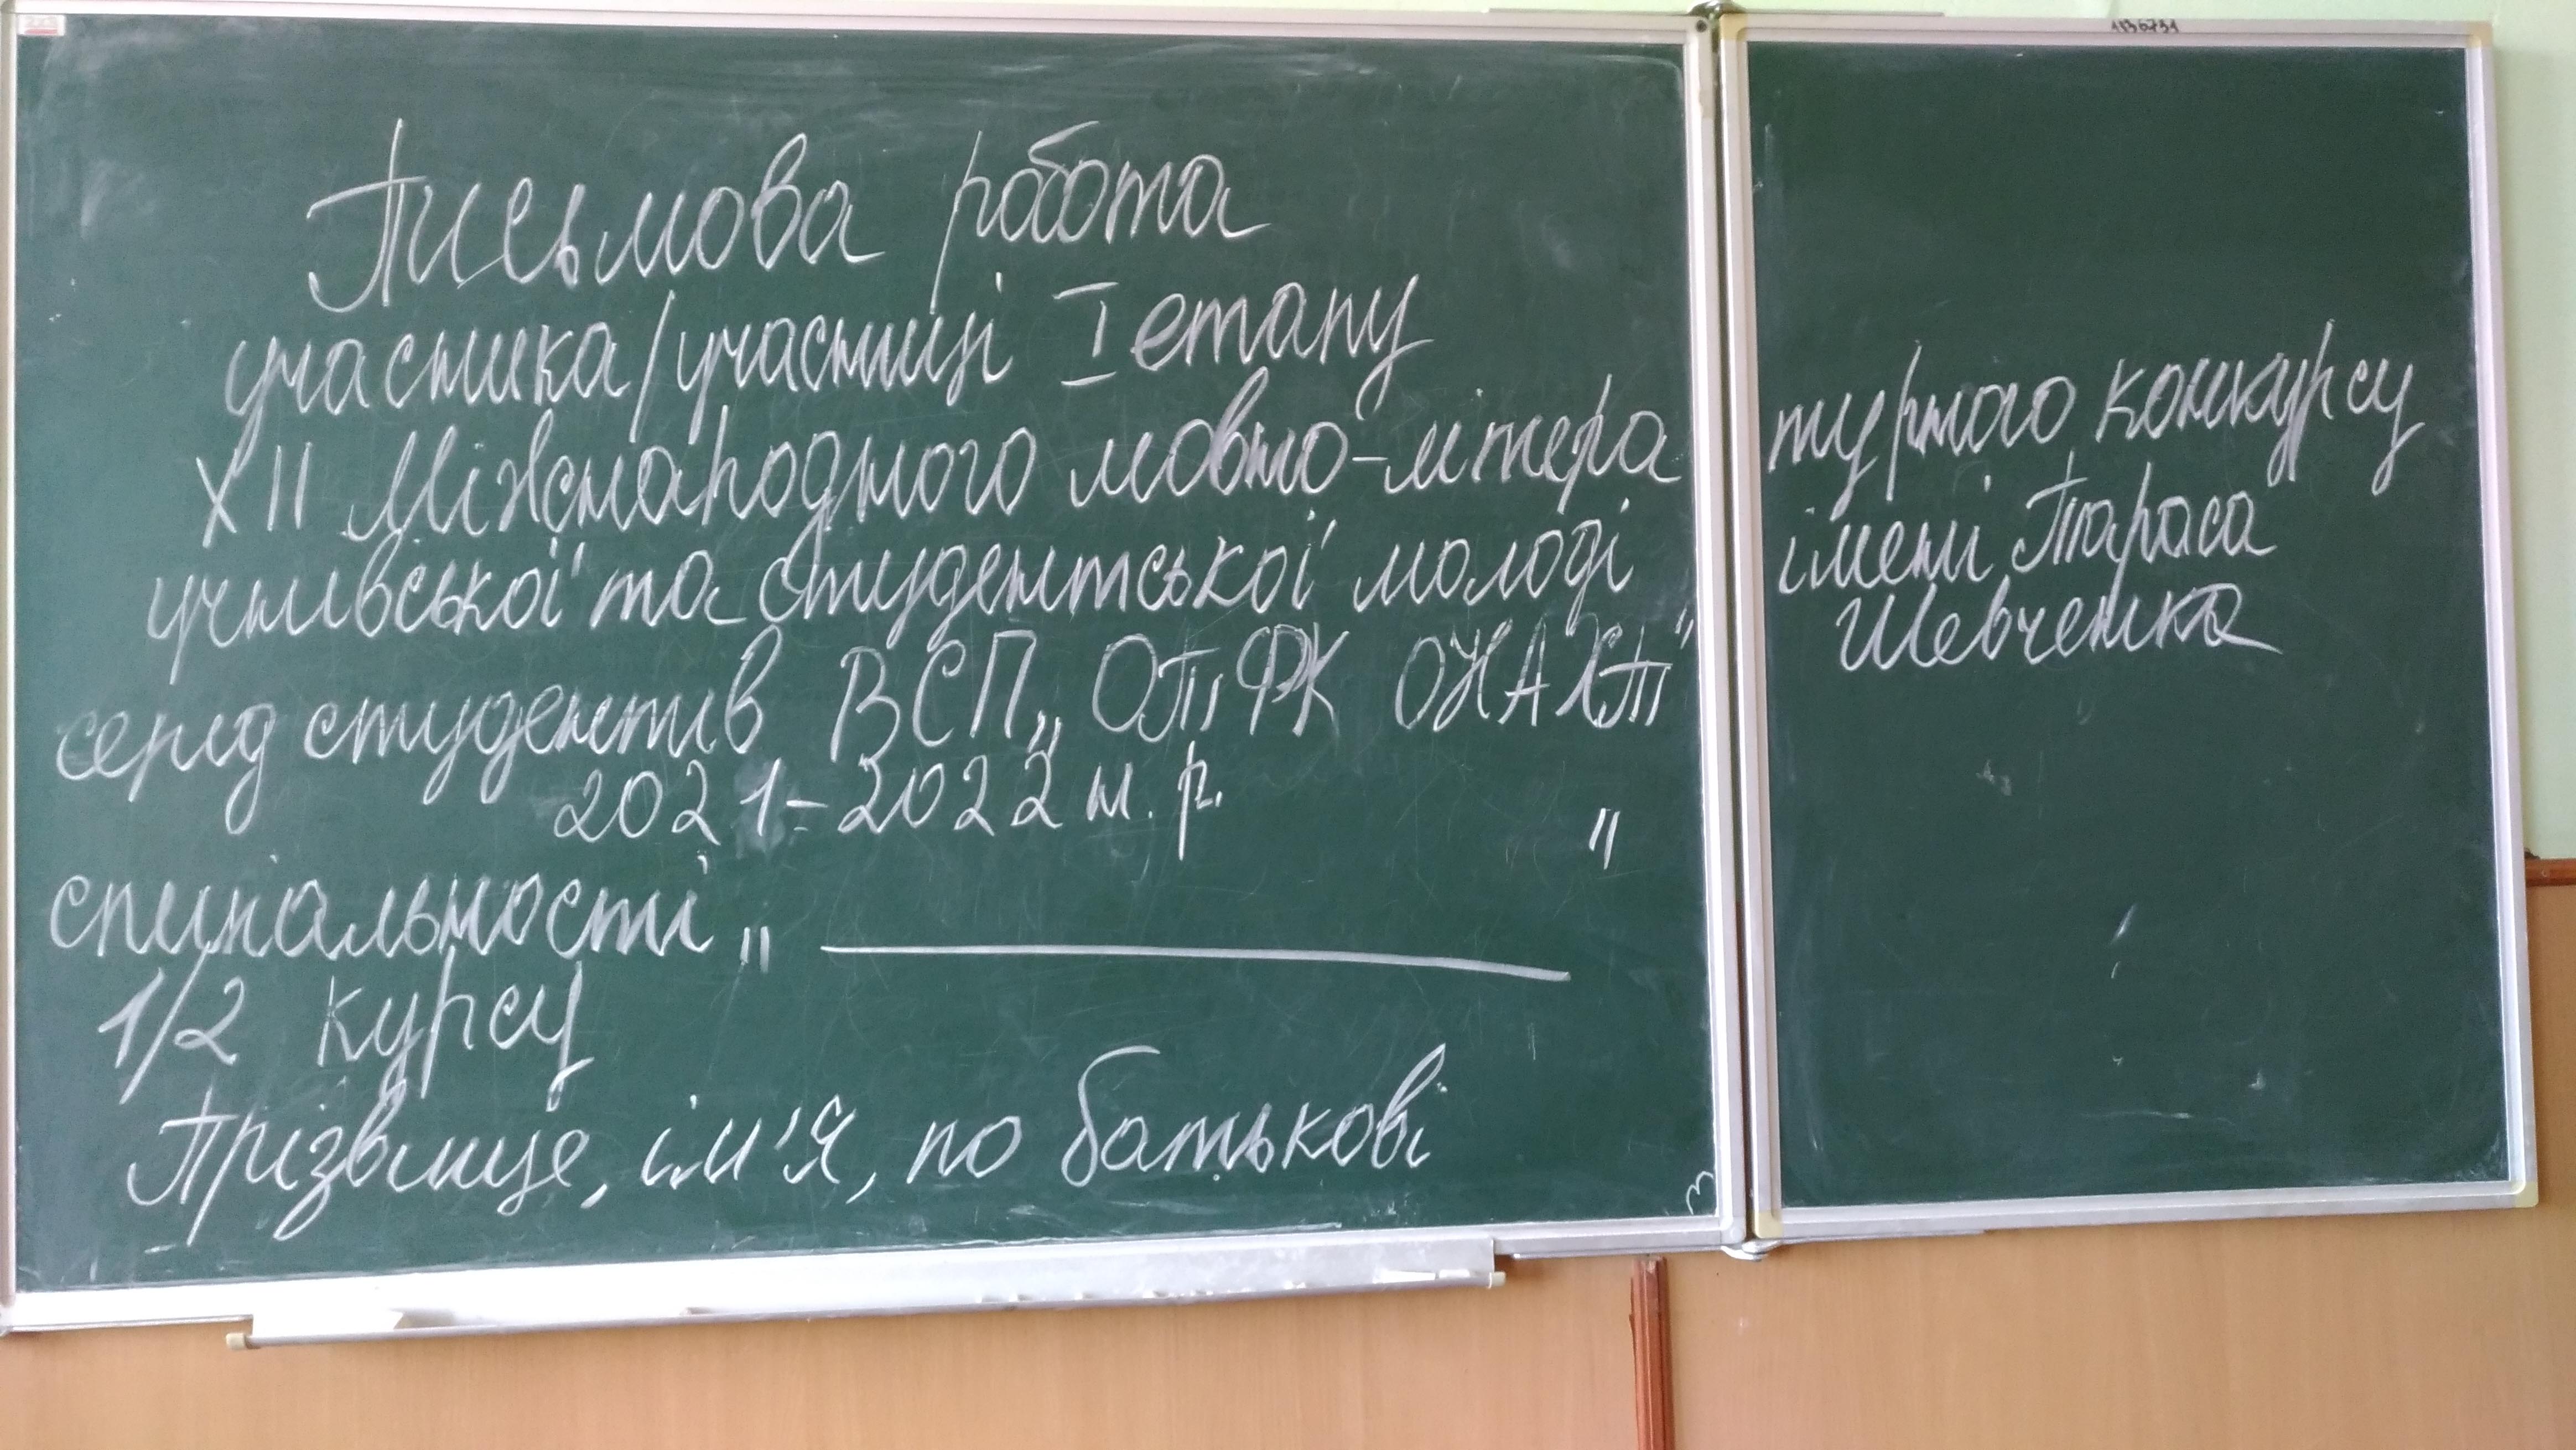 Письмова робота
учасника/учасниці I етапу
XII Міжнародного мовно-літера
турного конкурсу
імені Тараса
Шевченка
учнівської та студентської молоді
серед студентів ВСП „ОТФК ОНАХТ"
2021-2022 н. р.
спеціальності „ "
1/2 курсу
Прізвище, ім'я, по батькові